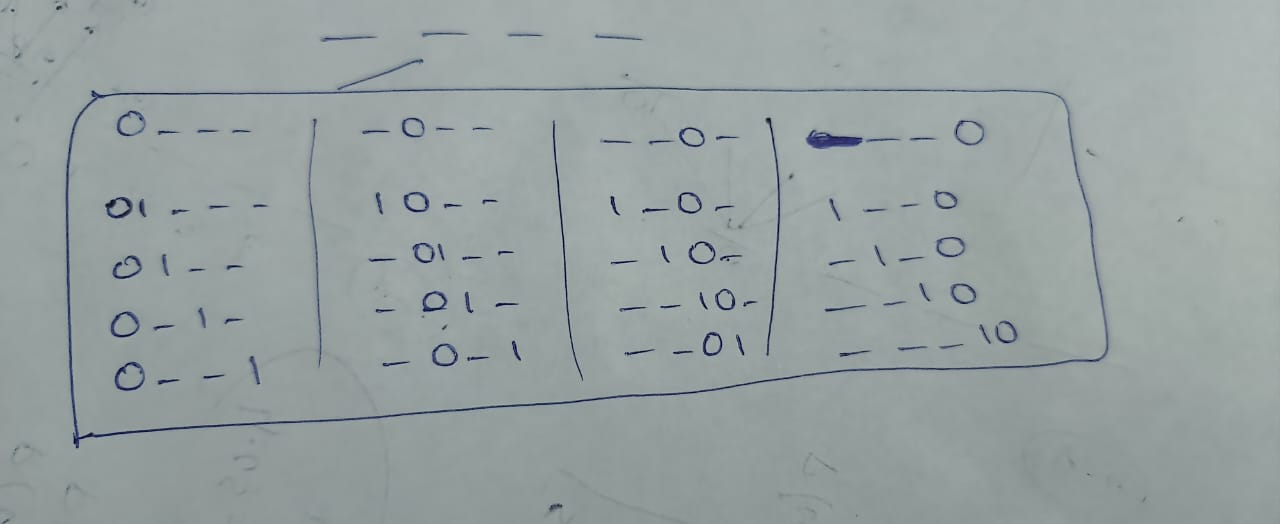 — — — —
0 - - - | - 0 - - | - - 0 - | - - 0
01 - - - | 1 0 - - | 1 - 0 - | 1 - - 0
0 1 - - | - 01 - - | - 1 0 - | - 1 - 0
0 - 1 - | - 0 1 - | - - 10 - | - - 1 0
0 - - 1 | - 0 - 1 | - - 01 | - - - 10